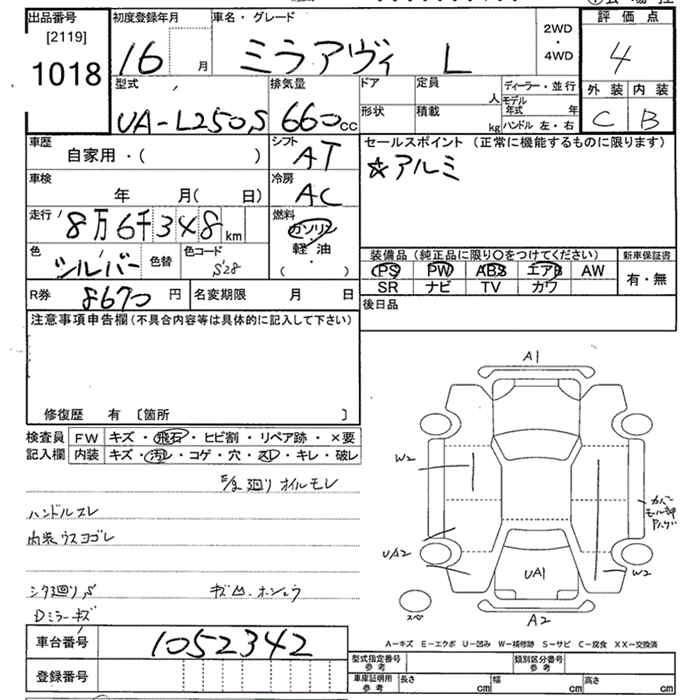 出品番号 初度登録年月 車名・グレード 評価点
[2119]
1018 16 月 ミラアヴィ L 2WD・4WD 4
型式 排気量 ドア 定員 人 ディーラー・並行 外装 内装
UA-L250S 660cc 形状 積載 kg モデル年式 年 ハンドル 左・右 C B
車歴 シフト セールスポイント (正常に機能するものに限ります)
自家用・( ) AT ☆アルミ
車検 冷房
年 月( 日) AC
走行 8万6千348km 燃料
ガソリン
軽・油
( )
色 シルバー 色替 色コード S28
装備品 (純正品に限り〇をつけてください) 新車保証書
PS PW ABS エアB AW 有・無
SR ナビ TV カワ
R券 8670円 名変期限 月 日 後日品
注意事項申告欄(不具合内容等は具体的に記入して下さい)
修復歴 有 〔箇所 〕
検査員 FW キズ・飛石・ヒビ割・リペア跡・×要
記入欄 内装 キズ・汚レ・コゲ・穴・スレ・キレ・破レ
廻り オイルモレ
ハンドルスレ
内装ウスヨゴレ
シタ廻りS
Dミラーキズ
A1
W2
UA2
UA1
W2
A2
スペ
カバー
モール部
A-キズ E-エクボ U-凹み W-補修跡 S-サビ C-腐食 XX-交換済
車台番号 1052342
登録番号
型式指定番号 参考 類別区分番号 参考
車庫証明用 参考 長さ cm 幅 cm 高さ cm